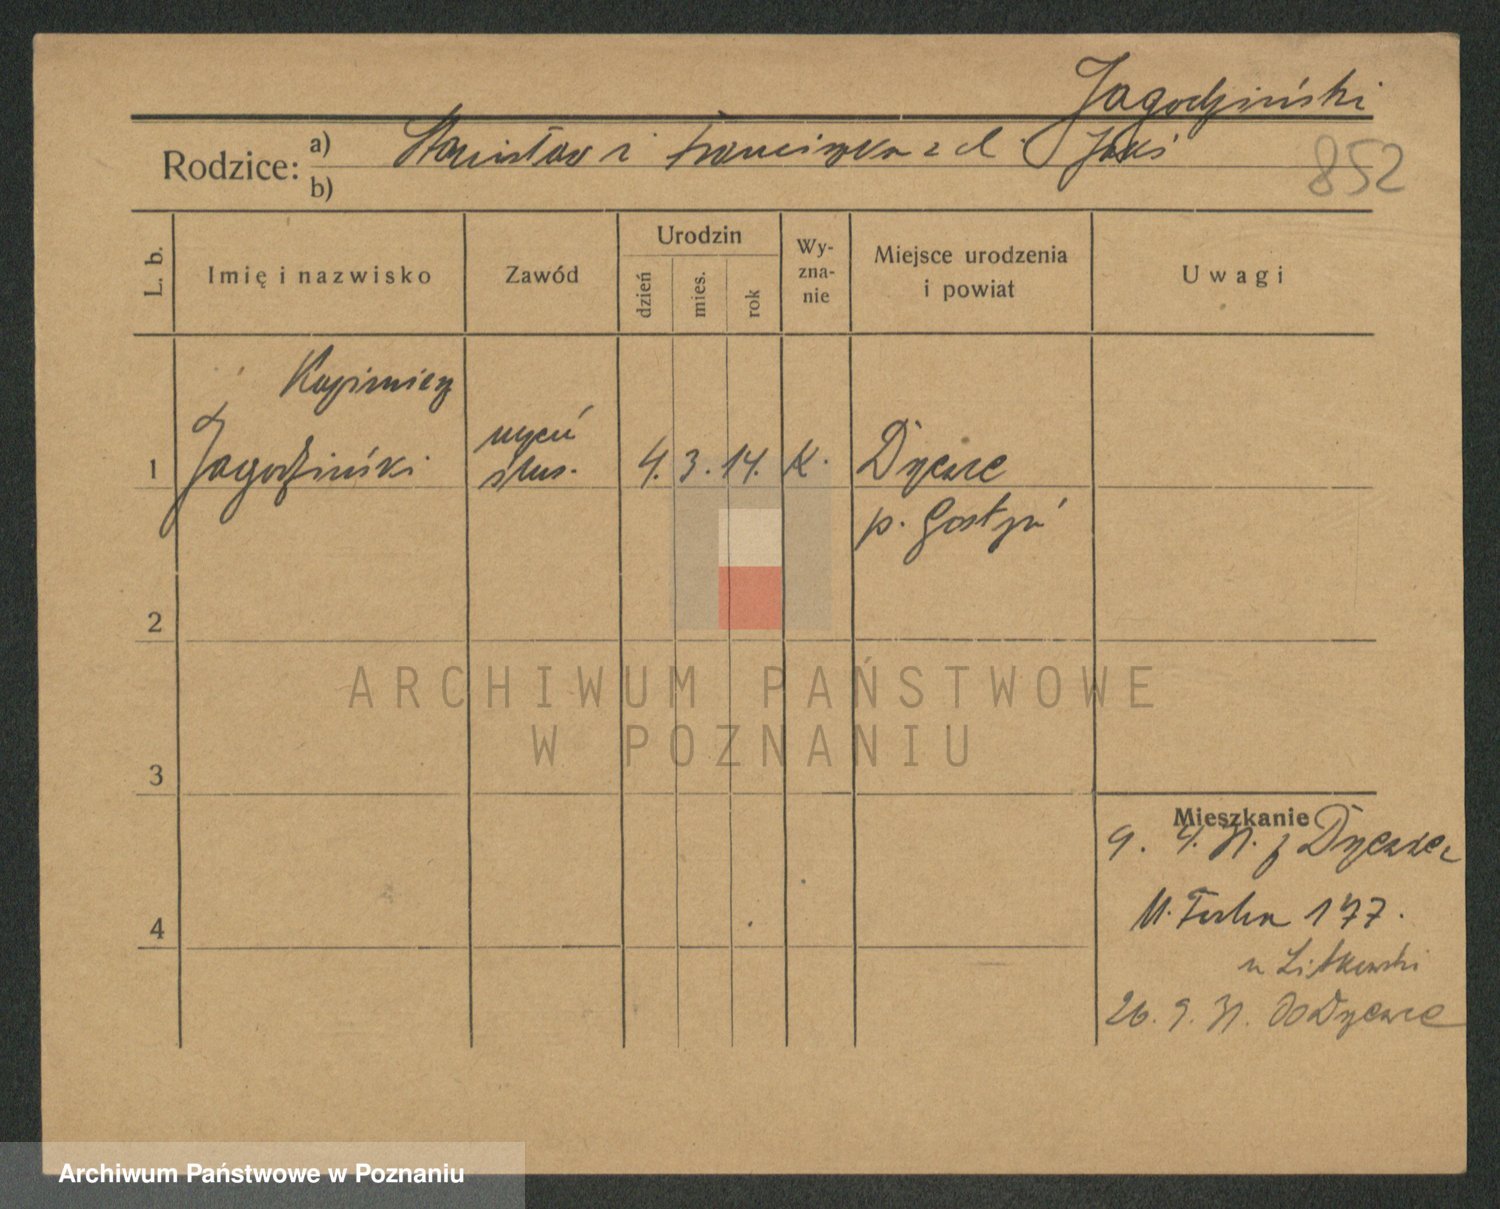 Jagodziński
Rodzice: a) Stanisław i Franciszka z d.
b)
852
L. b.
Imię i nazwisko
Zawód
Urodzin
dzień
mies.
rok
Wy-
zna-
nie
Miejsce urodzenia
i powiat
Uwagi
Kazimierz
1 Jagodziński
uczeń
ślus.
4. 3. 14. K. Dzięcz
p. Gostyń
2
ARCHIWUM PAŃSTWOWE
W POZNANIU
3
Mieszkanie
9. 4. 31. z
4
177.
u Litkowski
26. 9. 31. do
Archiwum Państwowe w Poznaniu